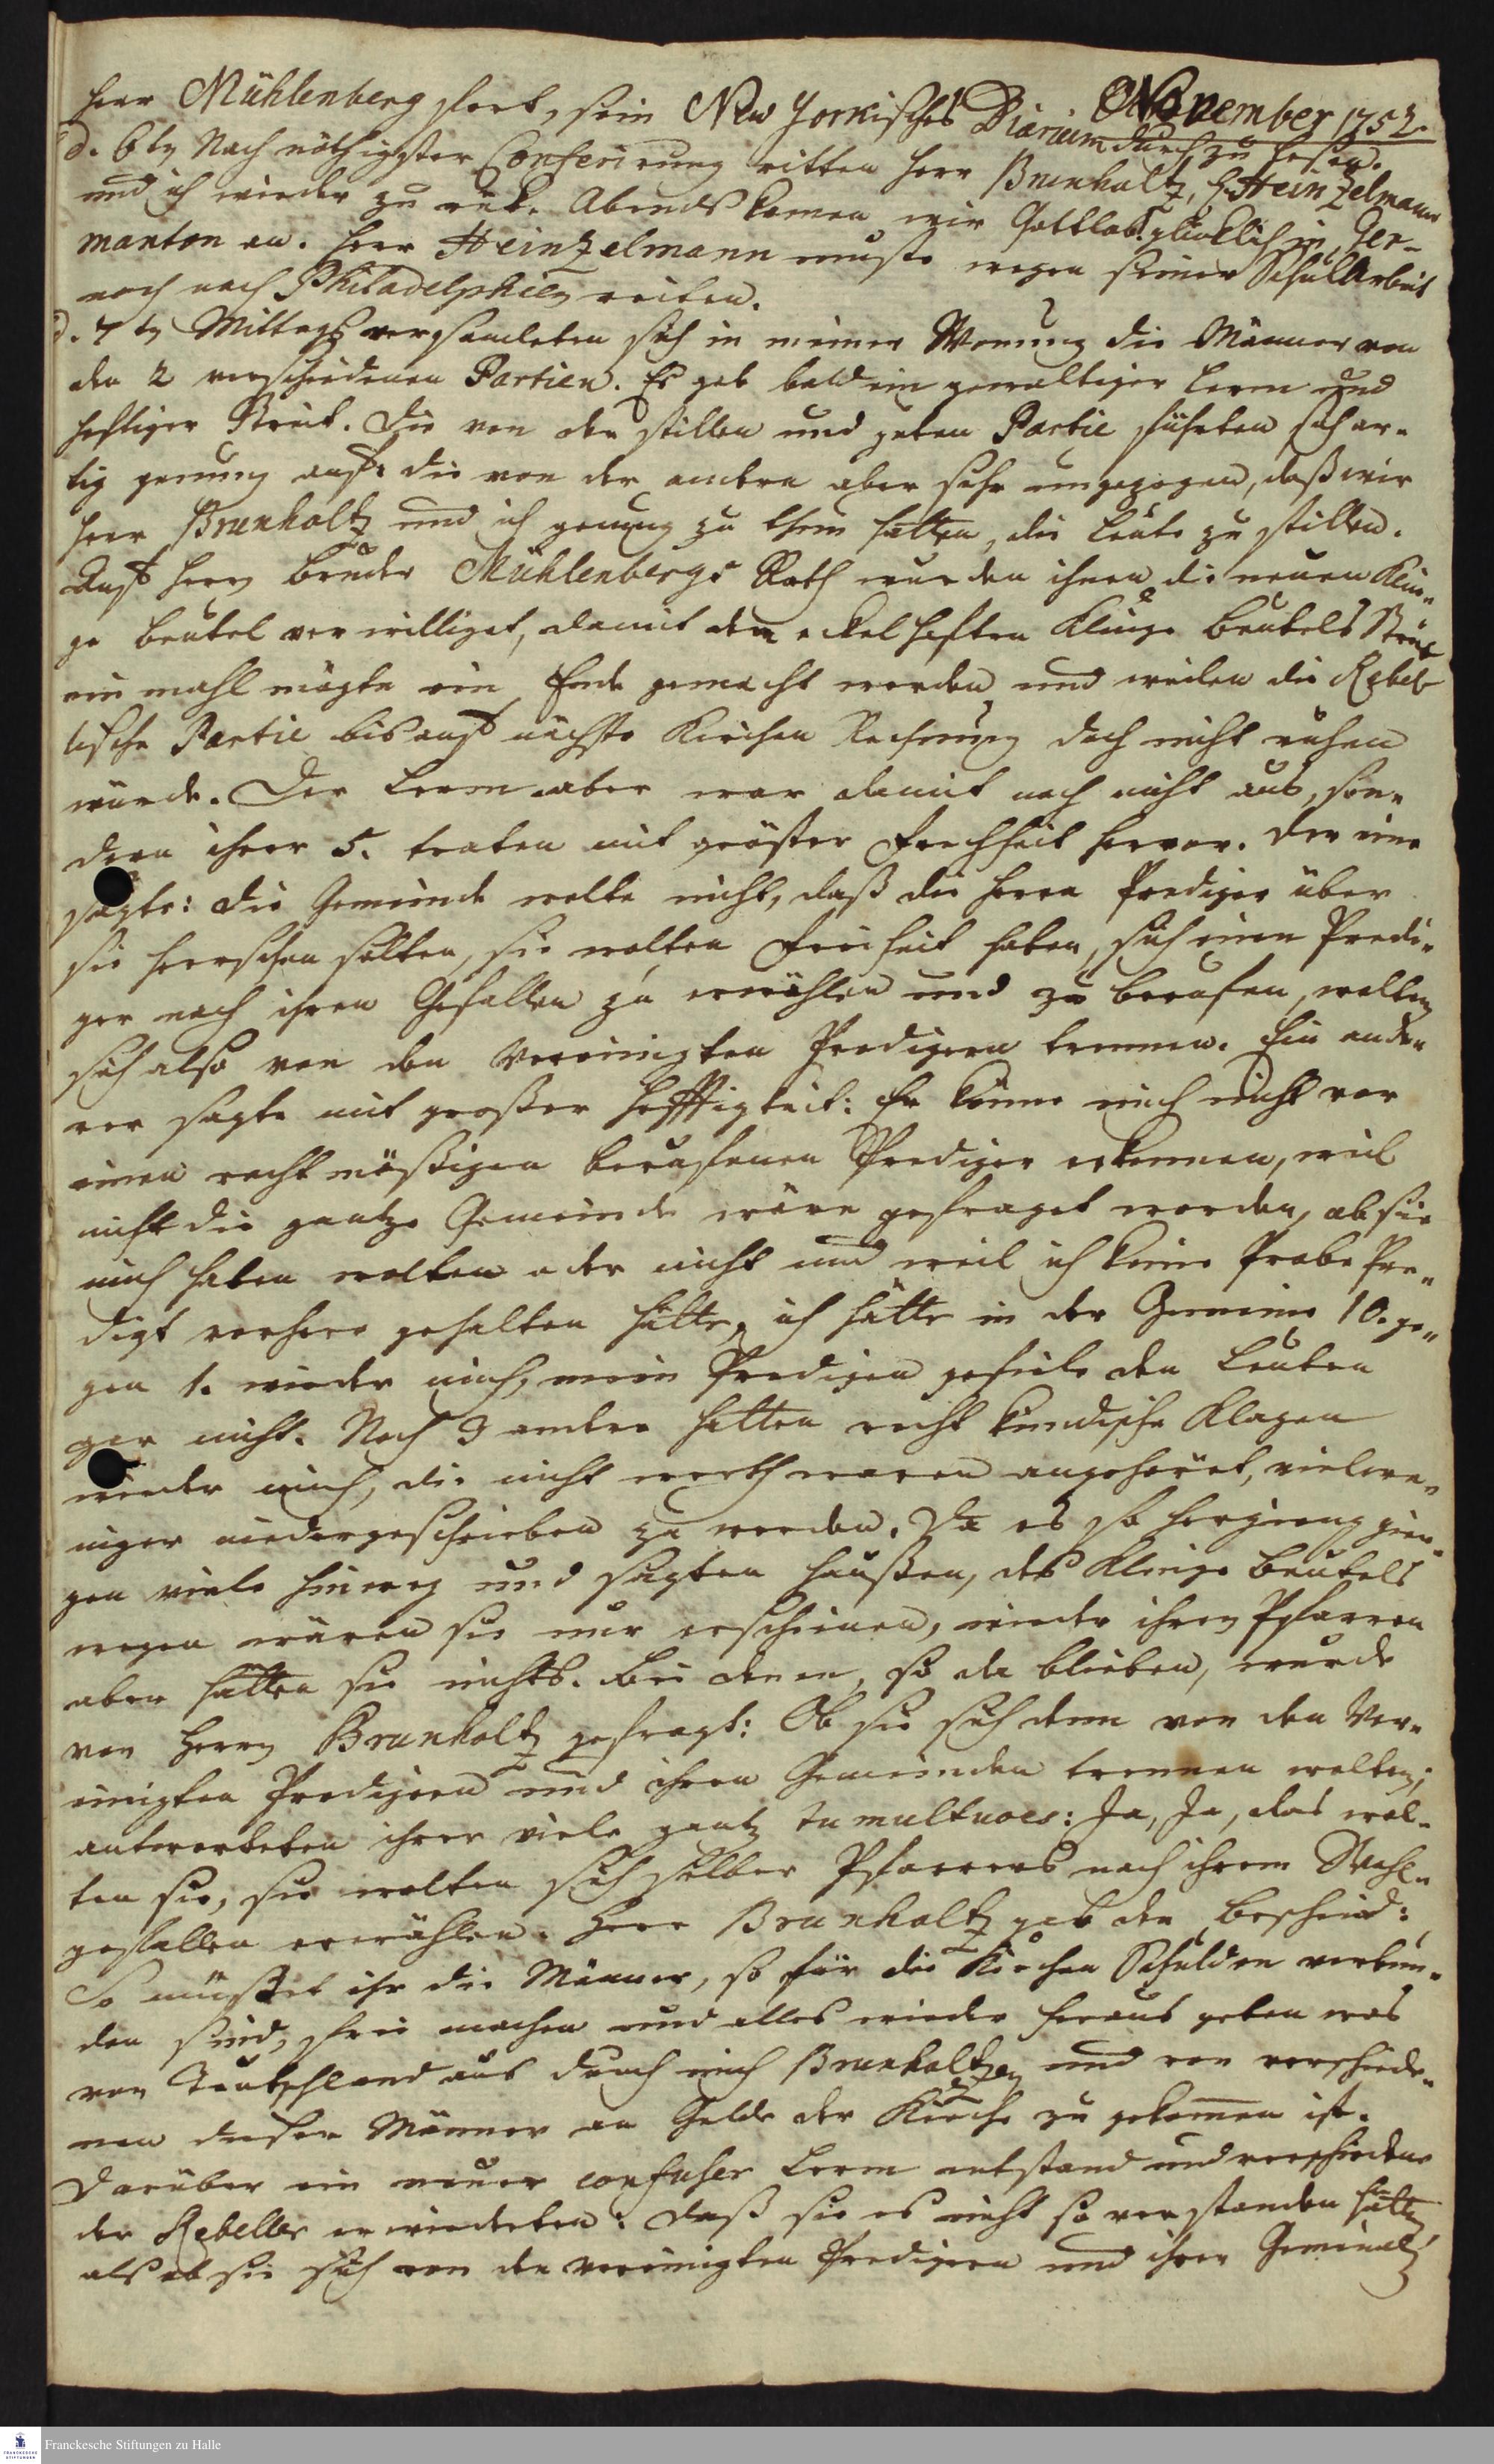 November 1752.
Herr Mühlenberg fort, sein New Yorkisches Diarium durch zu lesen.
d. 6ten Nach nöthigster Conferirung ritten Herr Brunholtz, H. Heinzelmann
und ich wieder zu rück. Abends kamen wir Gottlob! glücklich in Ger-
manton an. Herr Heinzelmann muste wegen seiner Schul Arbeit
noch nach Philadelphien reiten.
d. 7ten Mittags versamleten sich in meiner Wonung die Männer von
den 2 verschiedenen Partien. Es gab bald ein gewaltiger Lerm und
heftiger Streit. Die von der stillen und guten Partie führten sich ar-
tig genung auf: die von der andren aber sehr ungezogen, daß wir
Herr Brunholtz und ich genung zu thun hatten, die Leute zu stillen.
Auf Herrn Bruder Mühlenbergs Rath wurden ihnen die neuen Klin-
ge Beutel verwilliget, damit dem eckelhaften Klinge Beutels Streit
ein mahl mögte ein Ende gemacht werden und weilen die Rebel-
lische Partie bis auf nächste Kirchen Rechnung doch nicht ruhen
würde. Der Lerm aber war damit noch nicht aus, son-
dern ihrer 5. traten mit gröster Frechheit hervor. Der eine
sagte: die Gemeinde wolte nicht, daß die Herrn Prediger über
sie herrschen solten, sie wolten Freiheit haben, sich einen Predi-
ger nach ihren Gefallen zu erwählen und zu berufen, wolten
sich also von den Vereinigten Predigern trennen. Ein ande-
rer sagte mit großer Hefftigkeit: Er könne mich nicht vor
einen rechtmäßigen berufenen Prediger erkennen, weil
nicht die gantze Gemeinde wäre gefraget worden, ob sie
mich haben wolten oder nicht und weil ich keine Probe Pre-
digt vorhero gehalten hätte, ich hätte in der Gemeine 10. ge-
gen 1. wieder mich, mein Predigen gefiele den Leuten
gar nicht. Noch 3 andre hatten recht kindische Klagen
wieder mich, die nicht werth waren angehöret, vielwe-
niger niedergeschrieben zu werden. Da es so hergieng gien-
gen viele hinweg und sagten haußen, des Klinge Beutels
wegen wären sie nur erschienen, wieder ihren Pfarren
aber hätten sie nichts. Bei denen, so da blieben, wurde
von Herrn Brunholtz gefragt: Ob sie sich denn von den Ver-
einigten Predigern und ihren Gemeinden trennen wolten;
antworteten ihrer viele gantz tumultuoes: Ja, Ja, das wol-
ten sie, sie wolten sich selber Pfarrers nach ihrem Wohl-
gefallen erwählen. Herr Brunholtz gab den Bescheid:
So müsset ihr die Männer, so für die Kirchen Schulden verbun-
den sind, frei machen und alles wieder heraus geben was
von Teutschland aus durch mich Brunholtzen und von verschiede-
nen dieser Männer an Gelde der Kirche zu gekommen ist.
Darüber ein neuer confuser Lerm entstand und verschiedene
der Rebeller erwiederten: daß sie es nicht so verstanden hätten
als ob sie sich von den vereinigten Predigern und ihren Gemeinden
Franckesche Stiftungen zu Halle